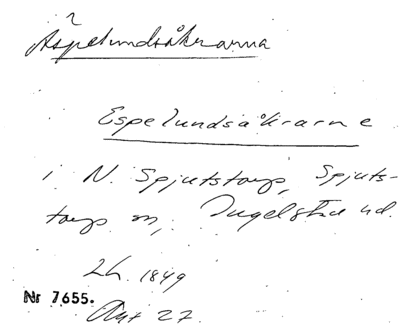 Äspelundsåkrarna
Espelundsåkrarne
i N. Spjutstorp, Spjuts-
torps sn, Ingelstad hd.
Lh. 1849
Nr 7655.
Akt 27